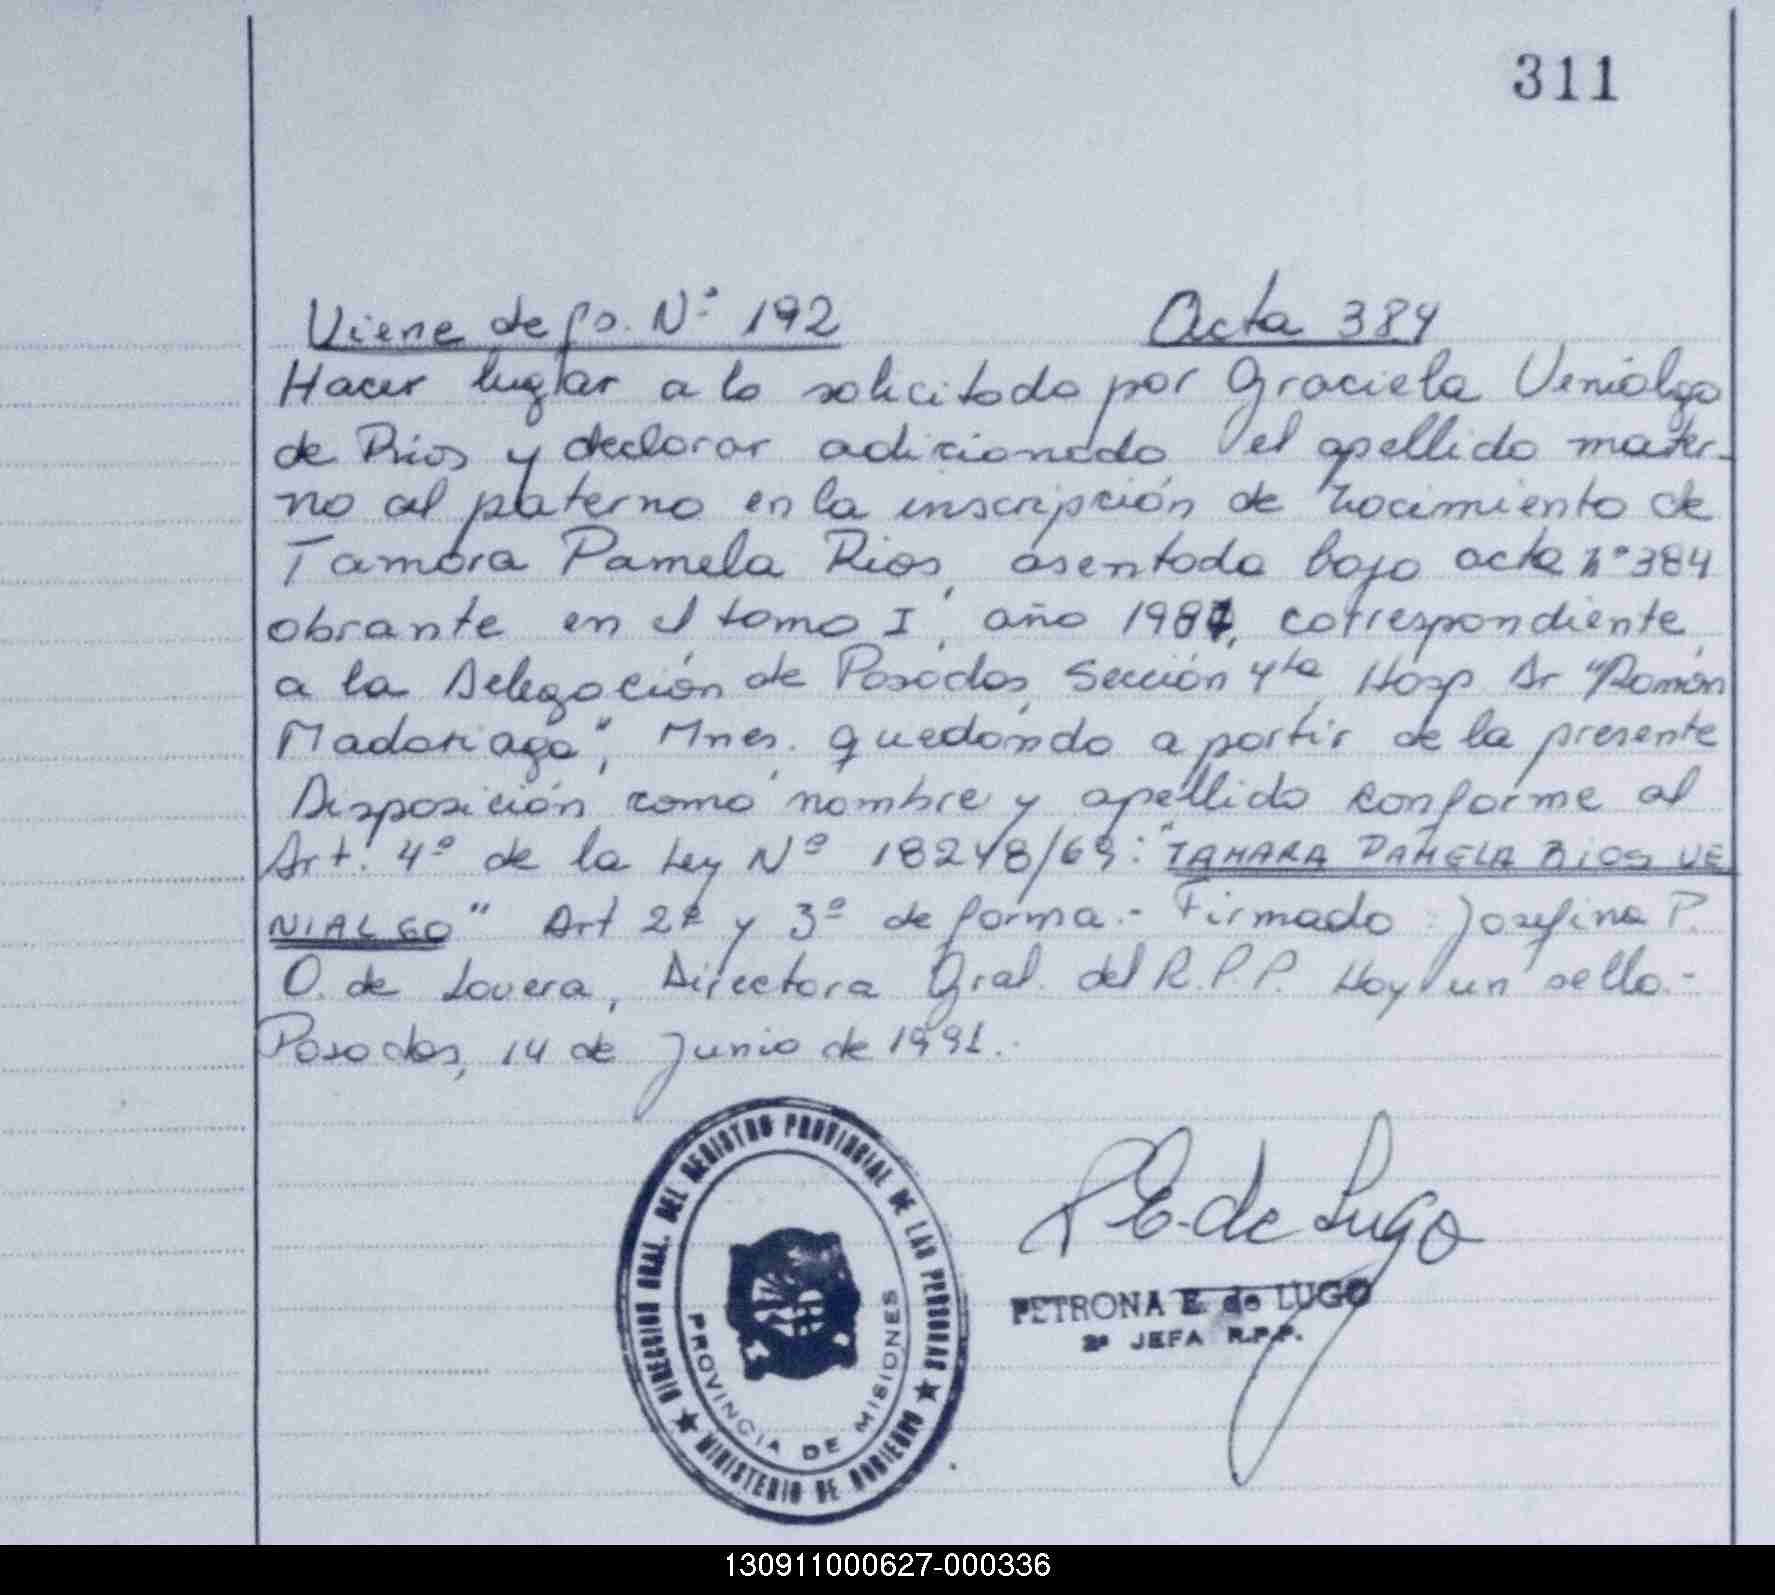 311
Viene de fs. Nº 192 Acta 384
Hacer lugar a lo solicitado por Graciela Venialgo
de Rios y declarar adicionado el apellido mater-
no al paterno en la inscripción de nacimiento de
Tamara Pamela Rios, asentada bajo acta nº 384
obrante en el tomo I, año 1987, correspondiente
a la Delegación de Posadas, Sección 4ta, Hosp Dr "Ramón
Madariaga", Mnes. quedando a partir de la presente
Disposición como nombre y apellido conforme al
Art. 4º de la Ley Nº 18248/69: "TAMARA PAMELA RIOS VE
NIALGO" Art 2º y 3º de forma.- Firmado: Josefina P.
O. de Lovera, Directora Gral. del R.P.P. Hay un sello.-
Posadas, 14 de Junio de 1991.-
DIRECCION GRAL. DEL REGISTRO PROVINCIAL DE LAS PERSONAS
PROVINCIA DE MISIONES
MINISTERIO DE GOBIERNO
P E. de Lugo
PETRONA E. de LUGO
2ª JEFA R.P.P.
130911000627-000336